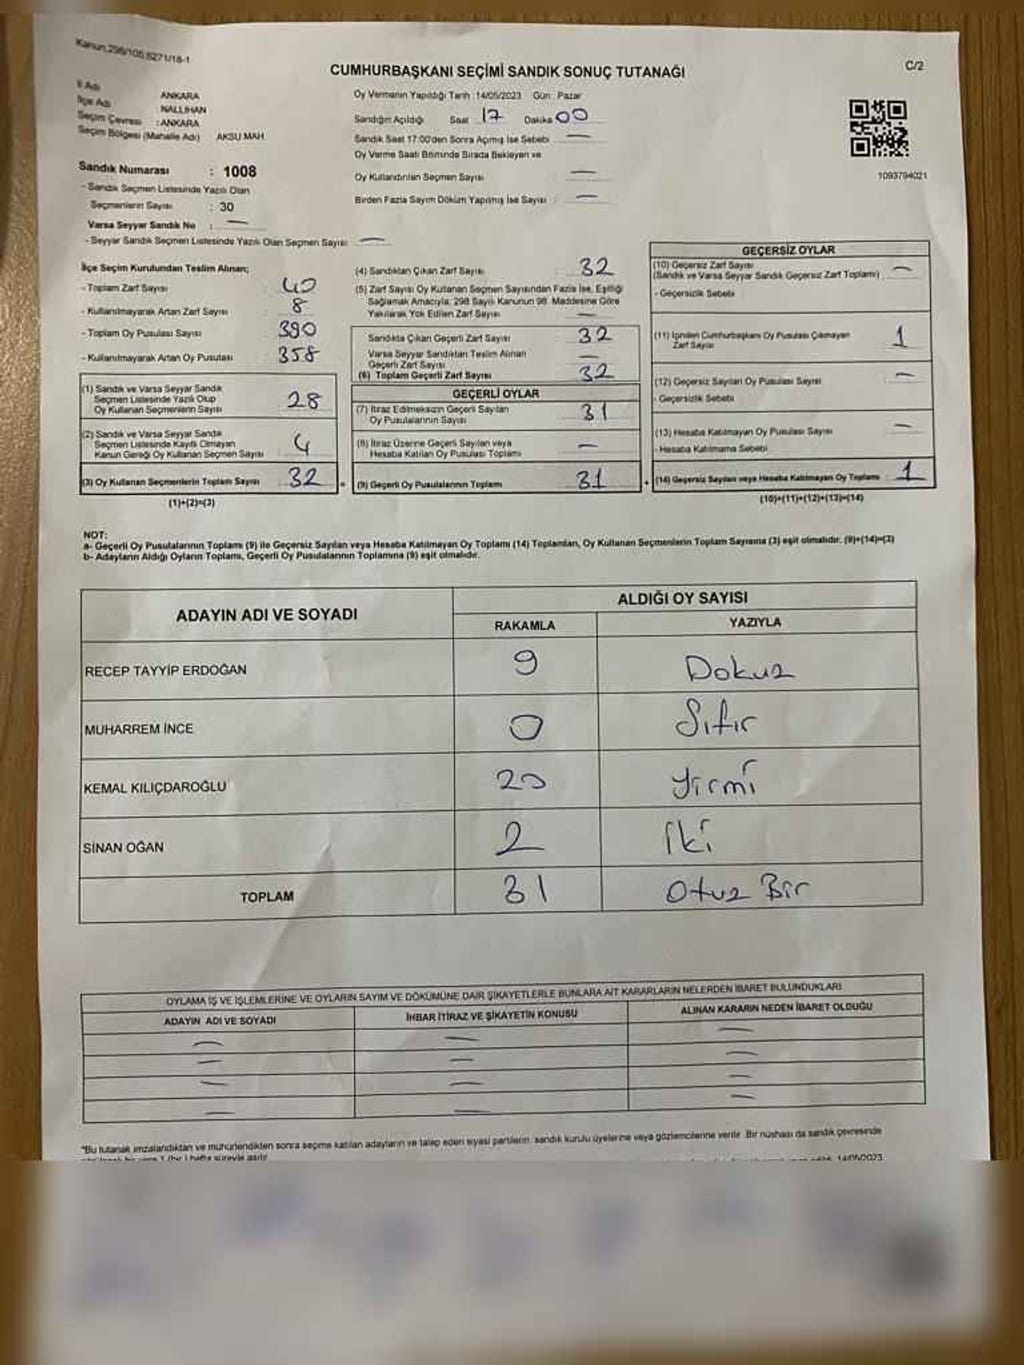 Kanun,298/105;6271/18-1
C/2
CUMHURBAŞKANI SEÇİMİ SANDIK SONUÇ TUTANAĞI
İl Adı ANKARA
İlçe Adı NALLIHAN
Seçim Çevresi : ANKARA
Seçim Bölgesi (Mahalle Adı) AKSU MAH
Sandık Numarası : 1008
- Sandık Seçmen Listesinde Yazılı Olan
Seçmenlerin Sayısı : 30
Varsa Seyyar Sandık No : —
- Seyyar Sandık Seçmen Listesinde Yazılı Olan Seçmen Sayısı —
Oy Vermenin Yapıldığı Tarih : 14/05/2023 Gün : Pazar
Sandığın Açıldığı Saat 17 Dakika 00
Sandık Saat 17:00'den Sonra Açımış İse Sebebi —
Oy Verme Saati Bitiminde Sırada Bekleyen ve
Oy Kullandırılan Seçmen Sayısı —
Birden Fazla Sayım Döküm Yapılmış İse Sayısı —
1093794021
İlçe Seçim Kurulundan Teslim Alınan;
- Toplam Zarf Sayısı 40
- Kullanılmayarak Artan Zarf Sayısı 8
- Toplam Oy Pusulası Sayısı 390
- Kullanılmayarak Artan Oy Pusulası 358
(1) Sandık ve Varsa Seyyar Sandık
Seçmen Listesinde Yazılı Olup
Oy Kullanan Seçmenlerin Sayısı 28
(2) Sandık ve Varsa Seyyar Sandık
Seçmen Listesinde Kayıtlı Olmayan
Kanun Gereği Oy Kullanan Seçmen Sayısı 4
(3) Oy Kullanan Seçmenlerin Toplam Sayısı 32
(1)+(2)=(3)
(4) Sandıktan Çıkan Zarf Sayısı 32
(5) Zarf Sayısı Oy Kullanan Seçmen Sayısından Fazla İse, Eşitliği
Sağlamak Amacıyla, 298 Sayılı Kanunun 98. Maddesine Göre
Yakılarak Yok Edilen Zarf Sayısı —
Sandıkta Çıkan Geçerli Zarf Sayısı 32
Varsa Seyyar Sandıktan Teslim Alınan
Geçerli Zarf Sayısı —
(6) Toplam Geçerli Zarf Sayısı 32
GEÇERLİ OYLAR
(7) İtiraz Edilmeksizin Geçerli Sayılan
Oy Pusulalarının Sayısı 31
(8) İtiraz Üzerine Geçerli Sayılan veya
Hesaba Katılan Oy Pusulası Toplamı —
(9) Geçerli Oy Pusulalarının Toplamı 31
GEÇERSİZ OYLAR
(10) Geçersiz Zarf Sayısı
(Sandık ve Varsa Seyyar Sandık Geçersiz Zarf Toplamı) —
- Geçersizlik Sebebi
(11) İçinden Cumhurbaşkanı Oy Pusulası Çıkmayan
Zarf Sayısı 1
(12) Geçersiz Sayılan Oy Pusulası Sayısı —
- Geçersizlik Sebebi
(13) Hesaba Katılmayan Oy Pusulası Sayısı —
- Hesaba Katılmama Sebebi
(14) Geçersiz Sayılan veya Hesaba Katılmayan Oy Toplamı 1
(10)+(11)+(12)+(13)=(14)
NOT:
a- Geçerli Oy Pusulalarının Toplamı (9) ile Geçersiz Sayılan veya Hesaba Katılmayan Oy Toplamı (14) Toplamları, Oy Kullanan Seçmenlerin Toplam Sayısına (3) eşit olmalıdır. (9)+(14)=(3)
b- Adayların Aldığı Oyların Toplamı, Geçerli Oy Pusulalarının Toplamına (9) eşit olmalıdır.
ADAYIN ADI VE SOYADI
ALDIĞI OY SAYISI
RAKAMLA YAZIYLA
RECEP TAYYİP ERDOĞAN 9 Dokuz
MUHARREM İNCE 0 Sıfır
KEMAL KILIÇDAROĞLU 20 Yirmi
SİNAN OĞAN 2 İki
TOPLAM 31 Otuz Bir
OYLAMA İŞ VE İŞLEMLERİNE VE OYLARIN SAYIM VE DÖKÜMÜNE DAİR ŞİKAYETLERLE BUNLARA AİT KARARLARIN NELERDEN İBARET BULUNDUKLARI
ADAYIN ADI VE SOYADI İHBAR İTİRAZ VE ŞİKAYETİN KONUSU ALINAN KARARIN NEDEN İBARET OLDUĞU
— — —
— — —
— — —
— — —
*Bu tutanak imzalandıktan ve mühürlendikten sonra seçime katılan adayların ve talep eden siyasi partilerin sandık kurulu üyelerine veya gözlemcilerine verilir. Bir nüshası da sandık çevresinde
14/05/2023